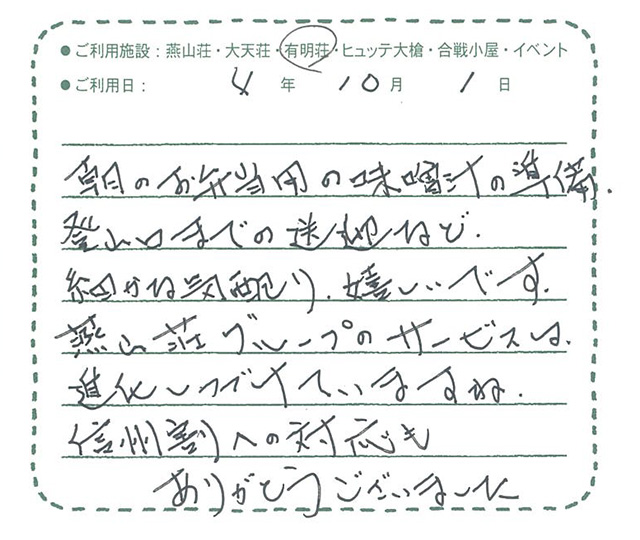 ●ご利用施設：燕山荘・大天荘・有明荘・ヒュッテ大槍・合戦小屋・イベント
●ご利用日：　4 年 10 月 1 日
朝のお弁当用の味噌汁の準備、
登山口までの送迎など、
細かな気配り、嬉しいです。
燕山荘グループのサービスは、
進化しつづけていますね。
信州割への対応も
ありがとうございました